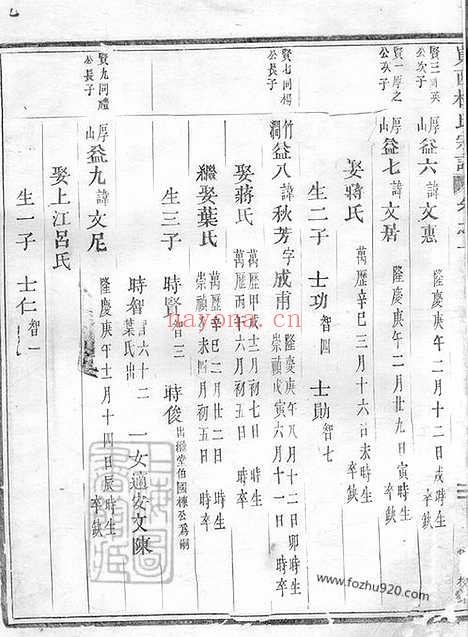 賢三
公次子
厚山 益六 諱文惠 隆慶庚午二月十二日戌時生 卒缺
賢一厚之
公次子
厚山 益七 諱文居 隆慶庚午二月廿九日寅時生 卒缺
娶蔣氏 萬歷辛巳三月十六日未時生 卒缺
生二子 士功 智四 士勛 智七
賢七同楊
公長子
竹澗 益八 諱秋芳 字成甫 隆慶庚午八月十二日卯時生 崇禎戊寅六月十一日 時卒
娶蔣氏 萬歷甲戌十二月初七日 時生 萬歷丙午六月初五日 時卒
繼娶葉氏 萬歷辛巳二月廿二日 時生 崇禎辛未四月初五日 時卒
生三子 時賢 智三 時俊 出繼堂伯國棟公爲嗣
時智 言六十二 葉氏出 一女適安文陳
賢九同禮
公長子
厚山 益九 諱文尼 隆慶庚午十一月十四日辰時生 卒缺
娶上江呂氏
生一子 士仁 智一
nayona.cn
www.fozhu920.com